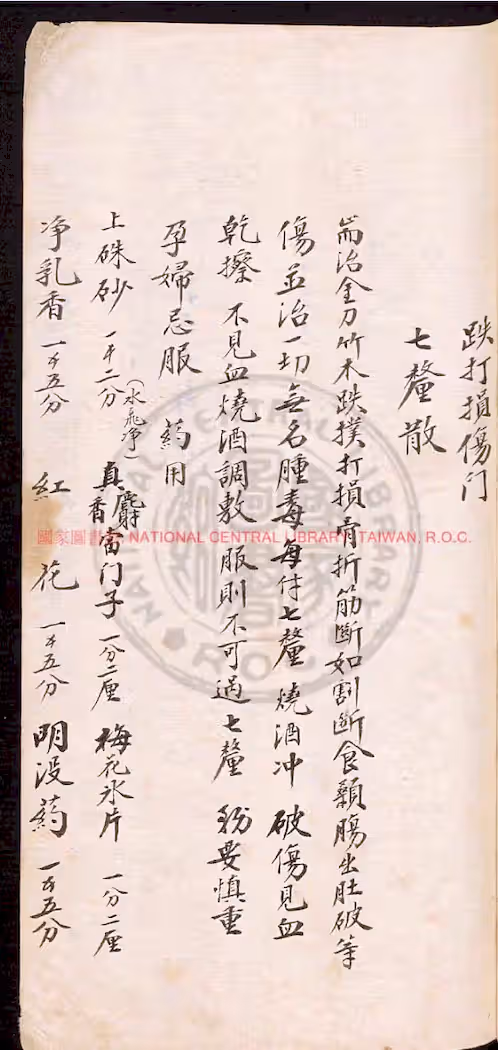 跌打損傷门
七釐散
耑治金刀竹木跌撲打損骨折筋斷如割斷食顙腸出肚破等
傷並治一切無名腫毒每付七釐 燒酒冲 破傷見血
乾擦 不見血燒酒調敷 服則不可過七釐 務要慎重
孕婦忌服 药用
上硃砂 一千二分(水飛净) 真麝香当门子 一分二厘 梅花冰片 一分二厘
净乳香 一千五分 紅花 一千五分 明没药 一千五分
國家圖書館 NATIONAL CENTRAL LIBRARY, TAIWAN, R.O.C.
NATIONAL CENTRAL LIBRARY R.O.C.